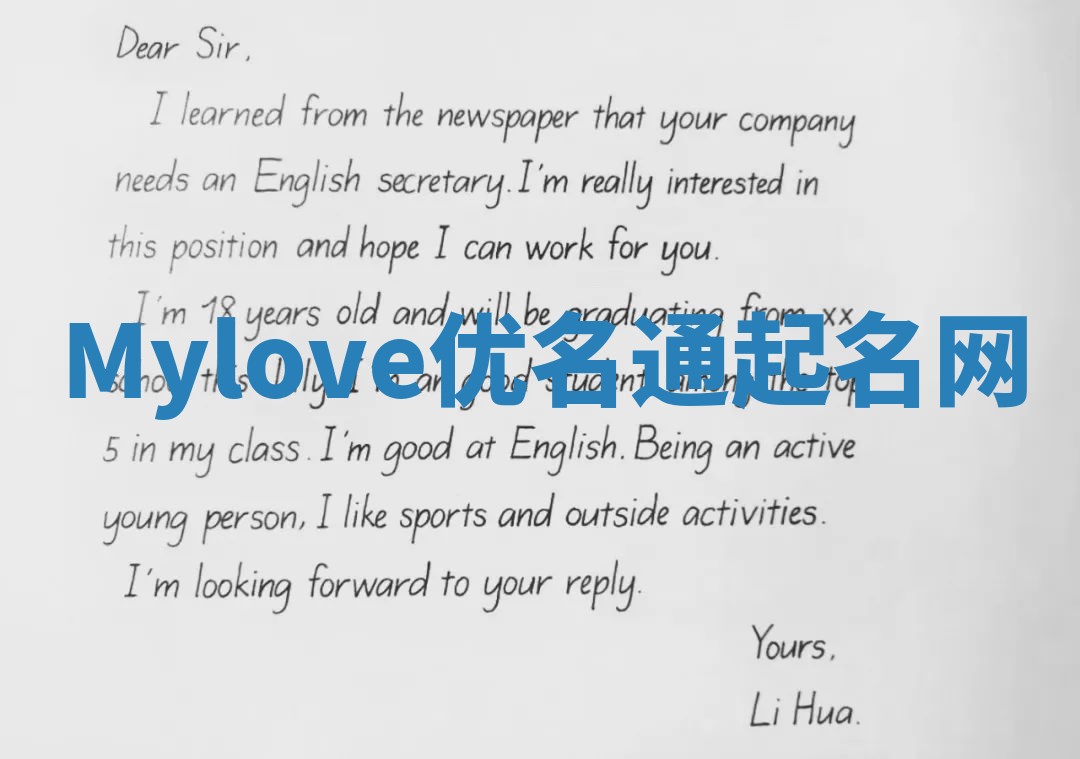 Dear Sir,
I learned from the newspaper that your company
needs an English secretary. I'm really interested in
this position and hope I can work for you.
I'm 18 years old and will be graduating from xx
Mylove优名通起名网
school this July. I'm an good student among the top
5 in my class. I'm good at English. Being an active
young person, I like sports and outside activities.
I'm looking forward to your reply.
Yours,
Li Hua.